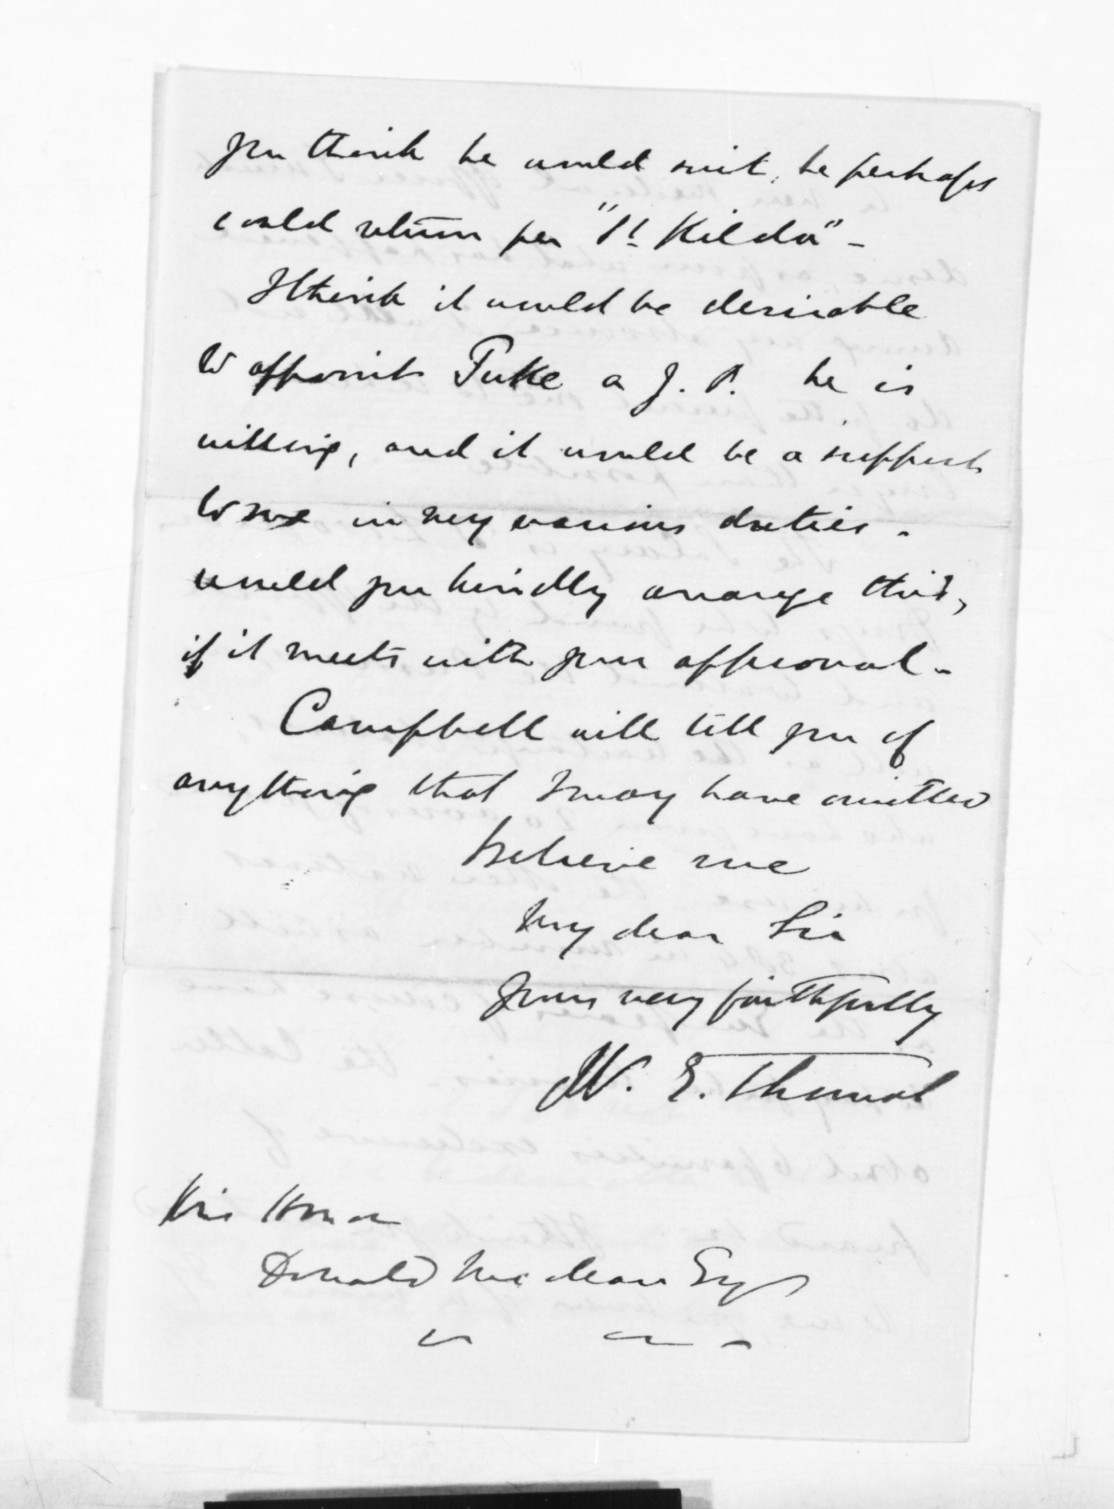 you think he would suit, he perhaps
could return per "St Kilda" -
I think it would be desirable
to appoint Tuke a J. P. he is
willing, and it would be a support
to me in my various duties -
would you kindly arrange this,
if it meets with your approval -
Campbell will tell you of
anything that I may have omitted
believe me
My dear Sir
Yours very faithfully
W. E. Thomas
His Honor
Donald McLean Esqr